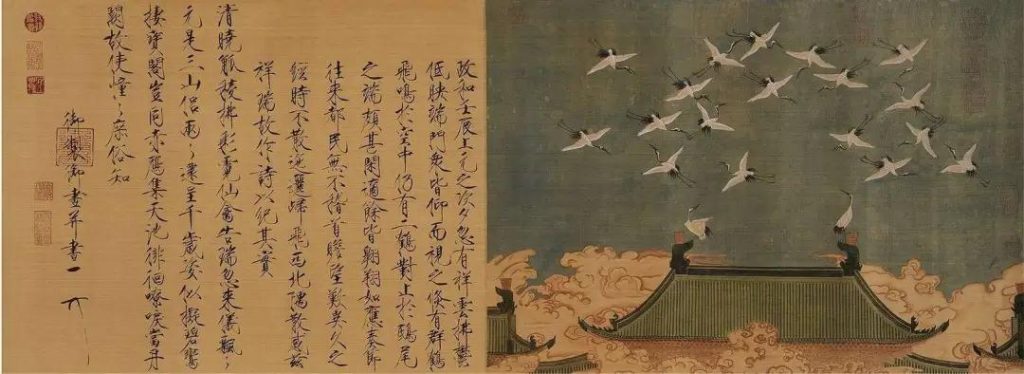 政和壬辰上元之次夕忽有祥雲拂鬱
低映端門衆皆仰而視之倐有群鶴
飛鳴於空中仍有二鶴對止於鴟尾
之端頗甚閑適餘皆翱翔如應奏節
往來都民無不稽首瞻望歎異久之
經時不散迤邐歸飛西北隅散感茲
祥瑞故作詩以紀其實
清曉觚稜拂彩霓仙禽告瑞忽來儀飄〻
元是三山侶兩〻還呈千歲姿似擬碧鸞
棲寶閣豈同赤鴈集天池徘徊嘹唳當丹
闕故使憧〻庶俗知
御製御畫并書